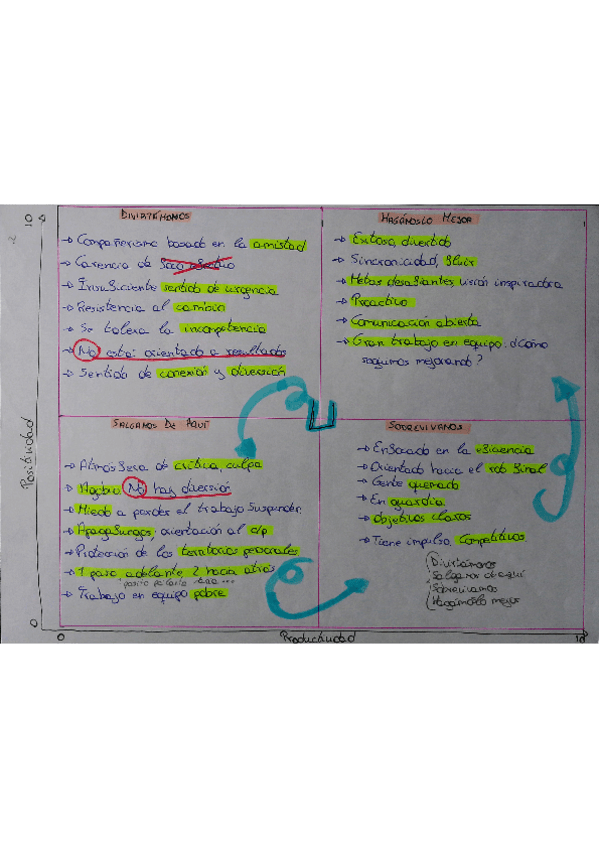 10
DIVIRTÁMONOS
→ Compañerismo basado en la amistad
→ Carencia de
→ Insuficiente sentido de urgencia
→ Resistencia al cambio
→ Se tolera la incompetencia
→ No está orientado a resultados
→ Sentido de conexión y diversión
HAGÁMOSLO MEJOR
→ Exitoso, divertido
→ Sincronicidad, fluir
→ Metas desafiantes, visión inspiradora
→ Proactivo
→ Comunicación abierta
→ Gran trabajo en equipo: ¿Cómo
seguimos mejorando?
Positividad
SALGAMOS DE AQUÍ
→ Atmósfera de crítica, culpa
→ No hay diversión
→ Miedo a perder el trabajo/suspender
→ Apagafuegos: orientación al c/p
→ Protección de los territorios personales
→ 1 paso adelante 2 hacia atrás
→ Trabajo en equipo pobre
SOBREVIVAMOS
→ Enfocado en la eficiencia
→ Orientado hacia el rdo final
→ Gente quemada
→ En guardia
→ Objetivos claros
→ Tiene impulso, Competitivos
Divirtámonos
Salgamos de aquí
Sobrevivamos
Hagámoslo mejor
0
0
Productividad
10